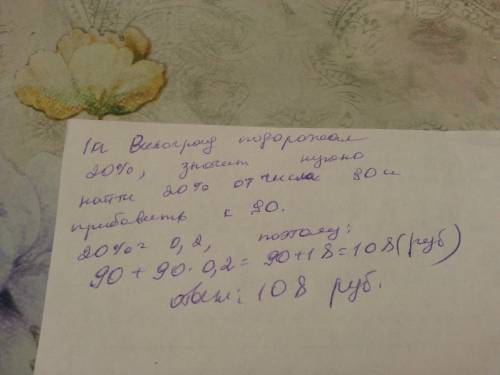 1а Виноград подорожал
20%, значит нужно
найти 20% от числа 90 и
прибавить к 90.
20% = 0,2, поэтому:
90 + 90 · 0,2 = 90 + 18 = 108 (руб)
Ответ: 108 руб.